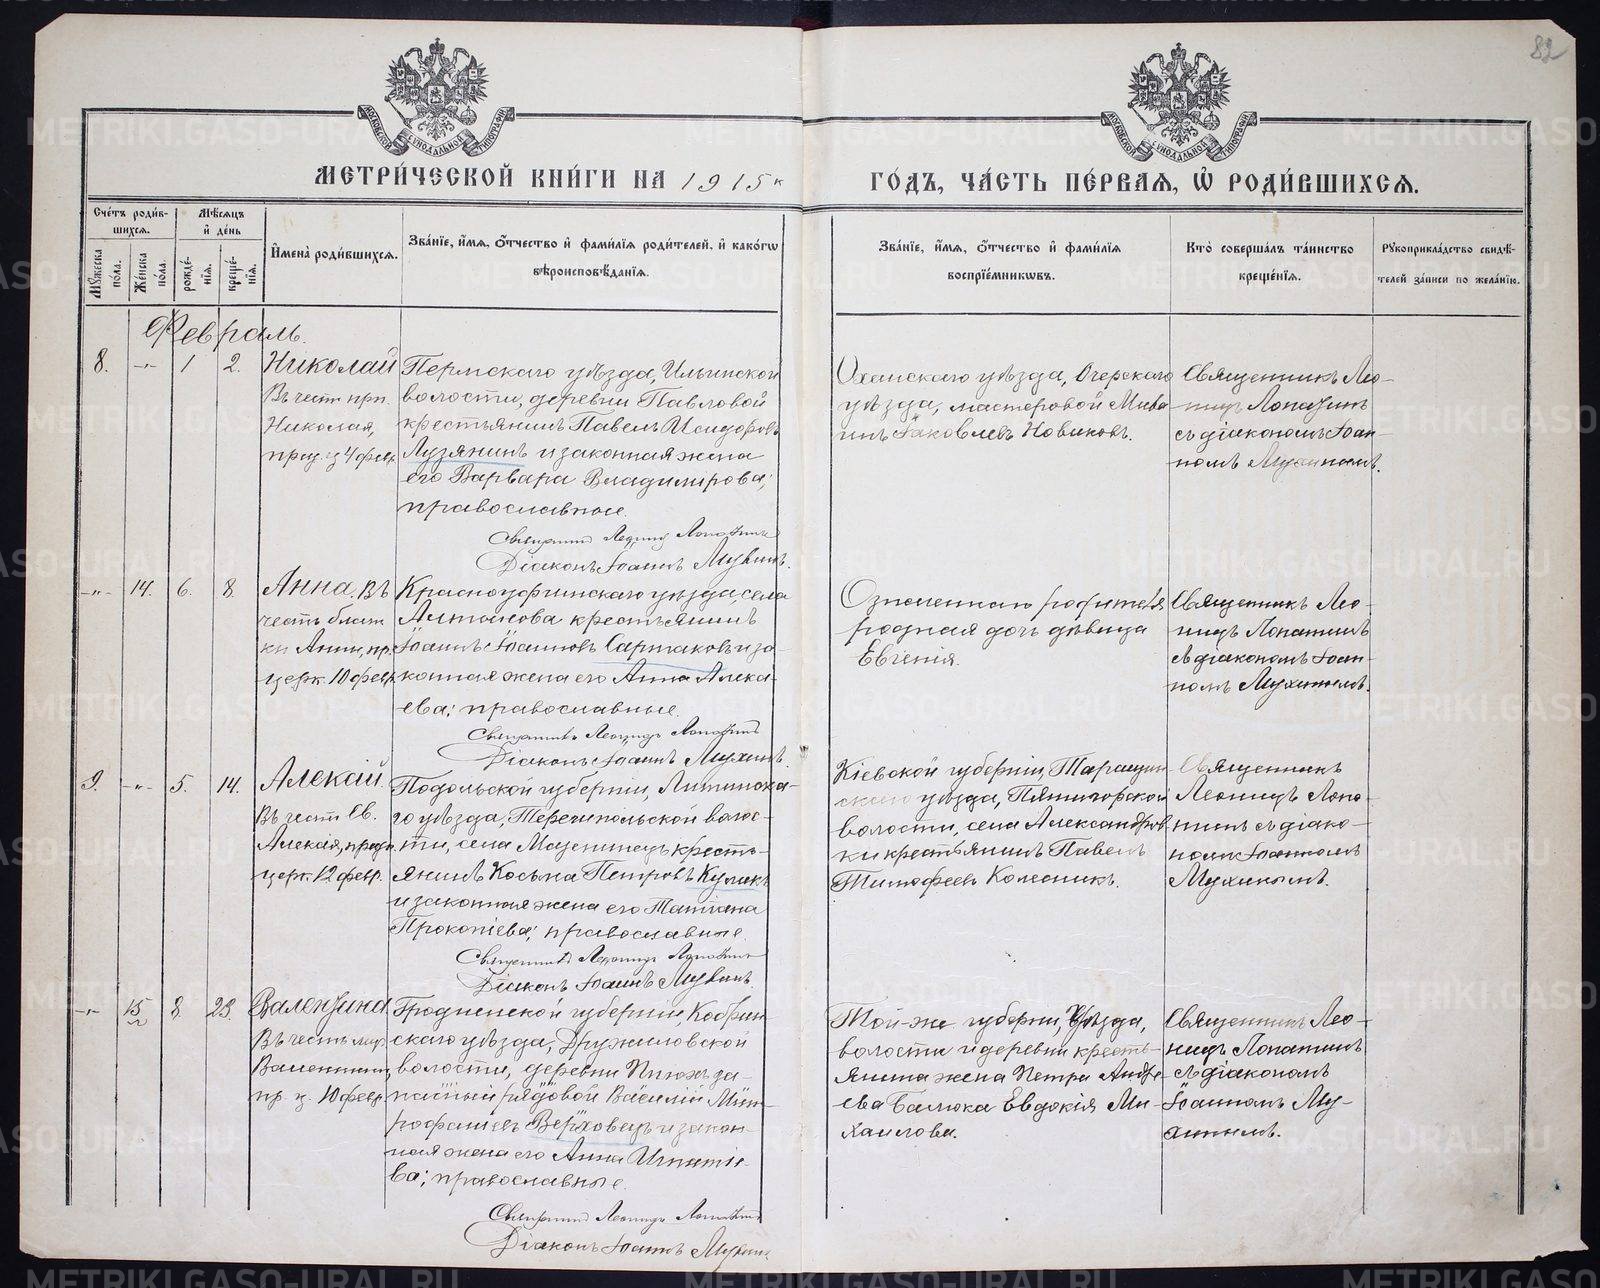 82
МОСКОВСКОЙ СУНОДАЛЬНОЙ ТИПОГРАФІИ
МОСКОВСКОЙ СУНОДАЛЬНОЙ ТИПОГРАФІИ
МЕТРИ́ЧЕСКОЙ КНИ́ГИ НА 1915й
ГО́ДЪ, ЧА́СТЬ ПЕ́РВАѦ, Ѡ҆ РОДИ́ВШИХСѦ.
Сче́тъ роди́в-
шихсѧ.
Мꙋ́жеска по́ла.
Же́нска по́ла.
Мѣ́сѧцъ
и҆ де́нь
рожде́-
нїѧ.
креще́-
нїѧ.
И҆мена̀ роди́вшихсѧ.
Зва́нїе, и҆́мѧ, ѻ҆́тчество и҆ фами́лїѧ роди́телей, и҆ како́гѡ
вѣроисповѣ́данїѧ.
Зва́нїе, и҆́мѧ, ѻ҆́тчество и҆ фами́лїѧ
воспрїе́мникѡвъ.
Кто̀ соверша́лъ та́инство
креще́нїѧ.
Рꙋкоприкла́дство свидѣ́-
телей за́писи по жела́нїю.
Февраль.
8. -„- 1 2. Николай
Въ честь прп.
Николая,
праз. ц. 4 февр.
Пермскаго уѣзда, Ильинской
волости, деревни Павловой
крестьянинъ Павелъ Исидоровъ
Лузянинъ и законная жена
его Варвара Владимирова;
православные.
Священникъ Леонидъ Лопатинъ
Діаконъ Іоаннъ Мухинъ.
Оханскаго уѣзда, Очерскаго
уѣзда, мастеровой
Іаковлевъ Новиковъ.
Священникъ Лео-
нидъ Лопатинъ
съ діакономъ Іоан-
номъ Мухинымъ.
-„- 14. 6. 8. Анна. Въ
честь
Анны, пр.
церк. 10 февр.
Красноуфимскаго уѣзда, села
Алтынова крестьянинъ
Іоаннъ Іоанновъ Сартаковъ и за-
конная жена его Анна Алексѣ-
ева; православные.
Священникъ Леонидъ Лопатинъ
Діаконъ Іоаннъ Мухинъ.
Означеннаго родителя
родная дочь дѣвица
Евгенія.
Священникъ Лео-
нидъ Лопатинъ
съ діакономъ Іоан-
номъ Мухинымъ.
9. -„- 5. 14. Алексій.
Въ честь св.
Алексія, празд.
церк. 12 февр.
Подольской губерніи, Литинска-
го уѣзда, Терешпольской волос-
ти, села кресть-
янинъ Косьма Петровъ Куликъ
и законная жена его Татіана
Прокопіева; православные.
Священникъ Леонидъ Лопатинъ
Діаконъ Іоаннъ Мухинъ.
Кіевской губерніи, Таращан-
скаго уѣзда, Пятигорской
волости, села Александров-
ки крестьянинъ Павелъ
Тимофеевъ Колесникъ.
Священникъ
Леонидъ Лопа-
тинъ съ діако-
номъ Іоанномъ
Мухинымъ.
-„- 15 8. 23. Валентина
Въ честь муч.
Валентины,
пр. ц. 10 февр.
Гродненской губерніи, Кобрин-
скаго уѣзда, Дружиловской
волости, деревни за-
пасный рядовой Василій Мит-
рофаніевъ Верховецъ и закон-
ная жена его Анна Игнатіе-
ва; православные.
Священникъ Леонидъ Лопатинъ
Діаконъ Іоаннъ Мухинъ.
Той-же губерніи, уѣзда,
волости и деревни кресть-
янина жена Петра Андре-
ева Балюка Евдокія Ми-
хаилова.
Священникъ Лео-
нидъ Лопатинъ
съ діакономъ
Іоанномъ Му-
хинымъ.
METRIKI.GASO-URAL.RU